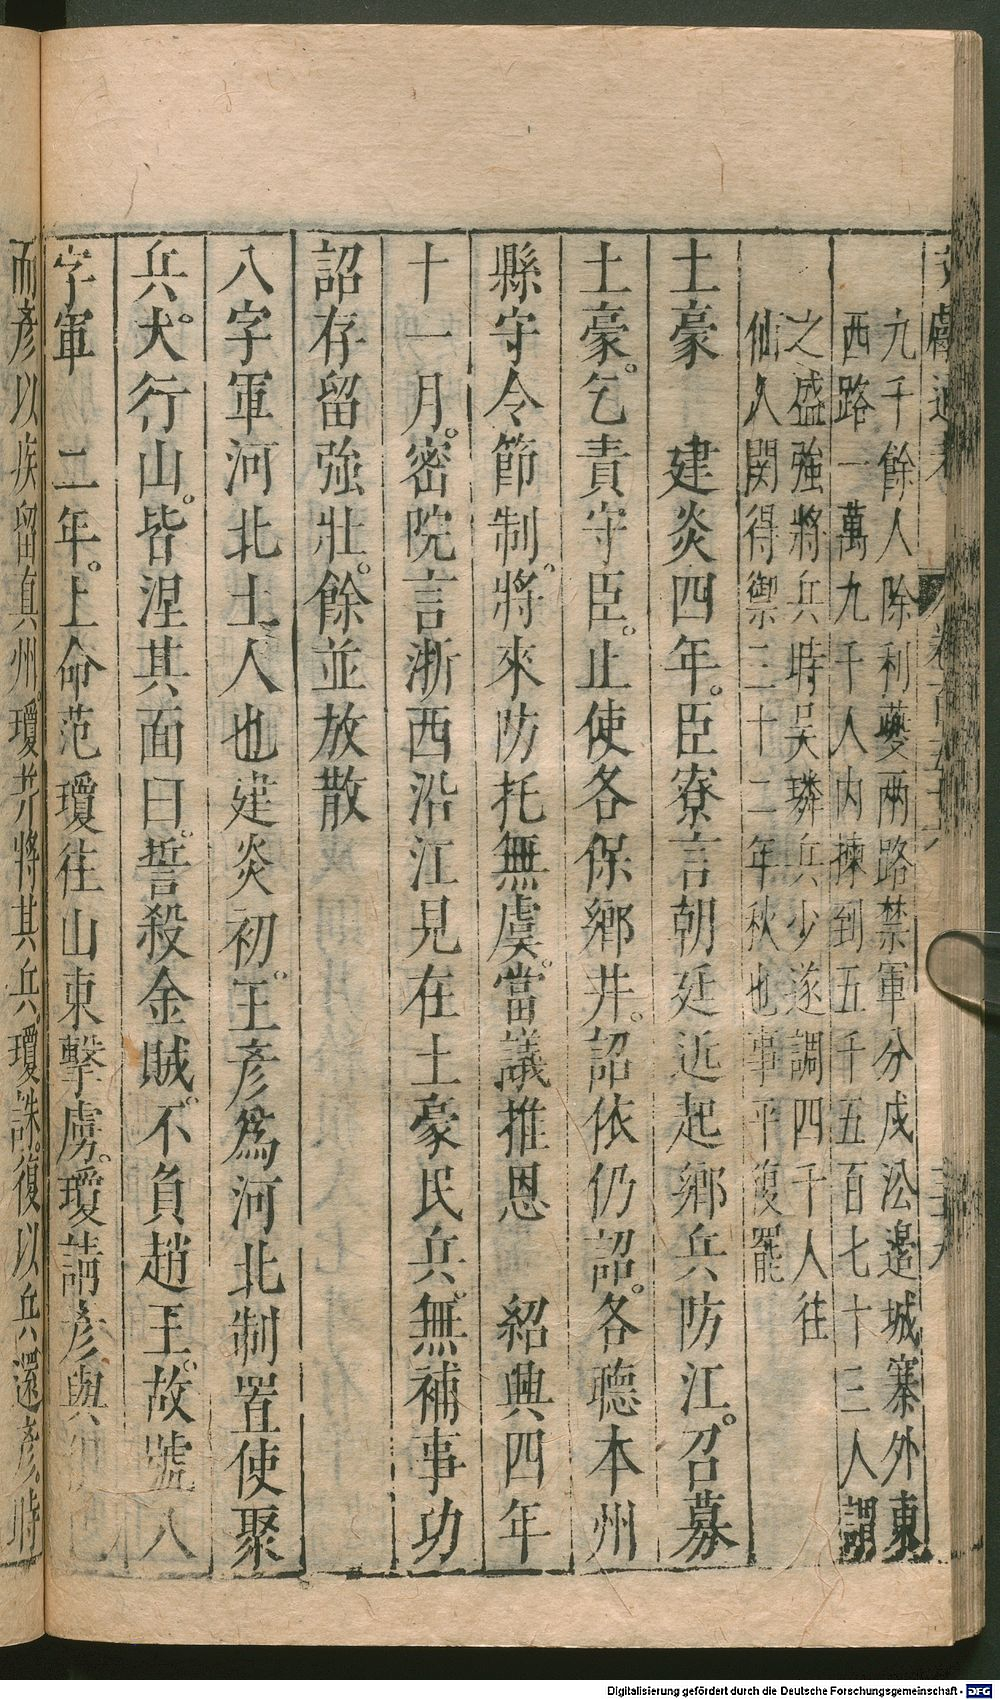 文獻通考 卷一百五十六
九千餘人除利夔兩路禁軍分戍沿邊城寨外東
西路一萬九千人內揀到五千五百七十三人謂
之盛強將兵時吳璘兵少遂調四千人往
仙人關得禦三十二年秋也事平復罷
土豪　建炎四年。臣寮言朝廷近起鄉兵防江。召募
土豪。乞責守臣。止使各保鄉井。詔依仍詔。各聽本州
縣守令節制。將來防托無虞。當議推恩　紹興四年
十一月。密院言浙西沿江見在土豪民兵。無補事功
詔存留強壯。餘並放散
八字軍河北土人也建炎初。王彥爲河北制置使聚
兵犬行山。皆涅其面曰。誓殺金賊。不負趙王。故號八
字軍　二年。上命范瓊往山東擊虜。瓊請彥與
而彥以疾留真州。瓊并將其兵。瓊誅。復以兵還彥。時
Digitalisierung gefördert durch die Deutsche Forschungsgemeinschaft - DFG